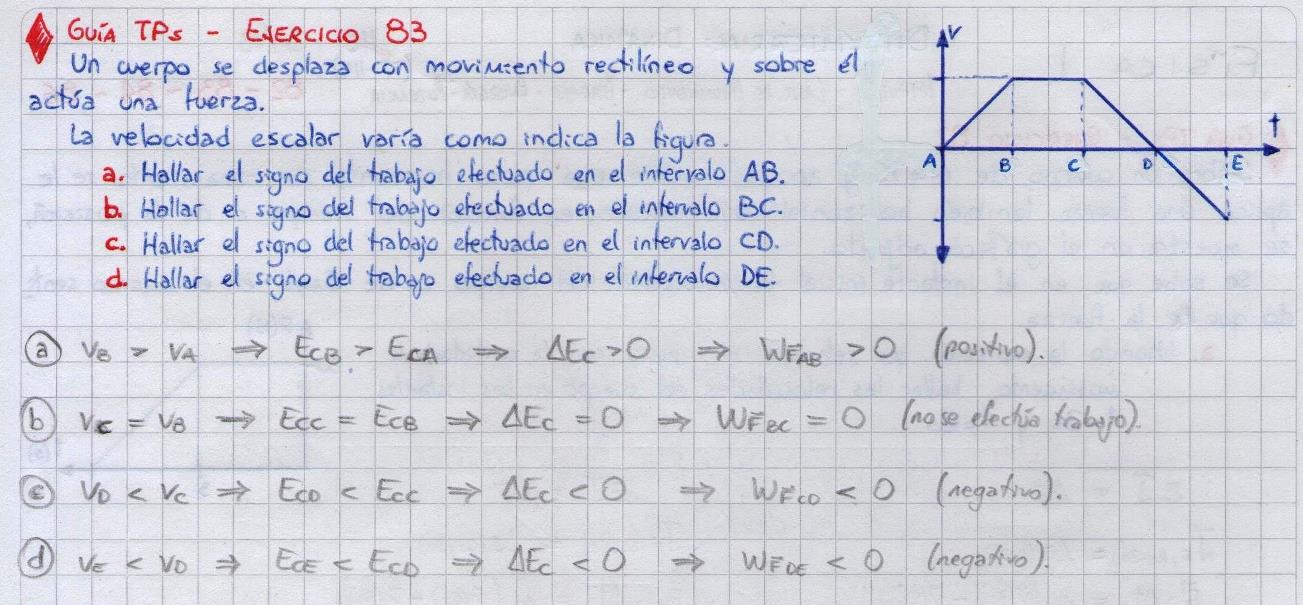 GUÍA TPs - EJERCICIO 83
Un cuerpo se desplaza con movimiento rectilíneo y sobre él
actúa una fuerza.
La velocidad escalar varía como indica la figura.
a. Hallar el signo del trabajo efectuado en el intervalo AB.
b. Hallar el signo del trabajo efectuado en el intervalo BC.
c. Hallar el signo del trabajo efectuado en el intervalo CD.
d. Hallar el signo del trabajo efectuado en el intervalo DE.
V
t
A B C D E
a) VB > VA ⇒ ECB > ECA ⇒ ΔEC > 0 ⇒ WFAB > 0 (positivo).
b) VC = VB ⇒ ECC = ECB ⇒ ΔEC = 0 ⇒ WFBC = 0 (no se efectúa trabajo).
c) VD < VC ⇒ ECD < ECC ⇒ ΔEC < 0 ⇒ WFCD < 0 (negativo).
d) VE < VD ⇒ ECE < ECD ⇒ ΔEC < 0 ⇒ WFDE < 0 (negativo).